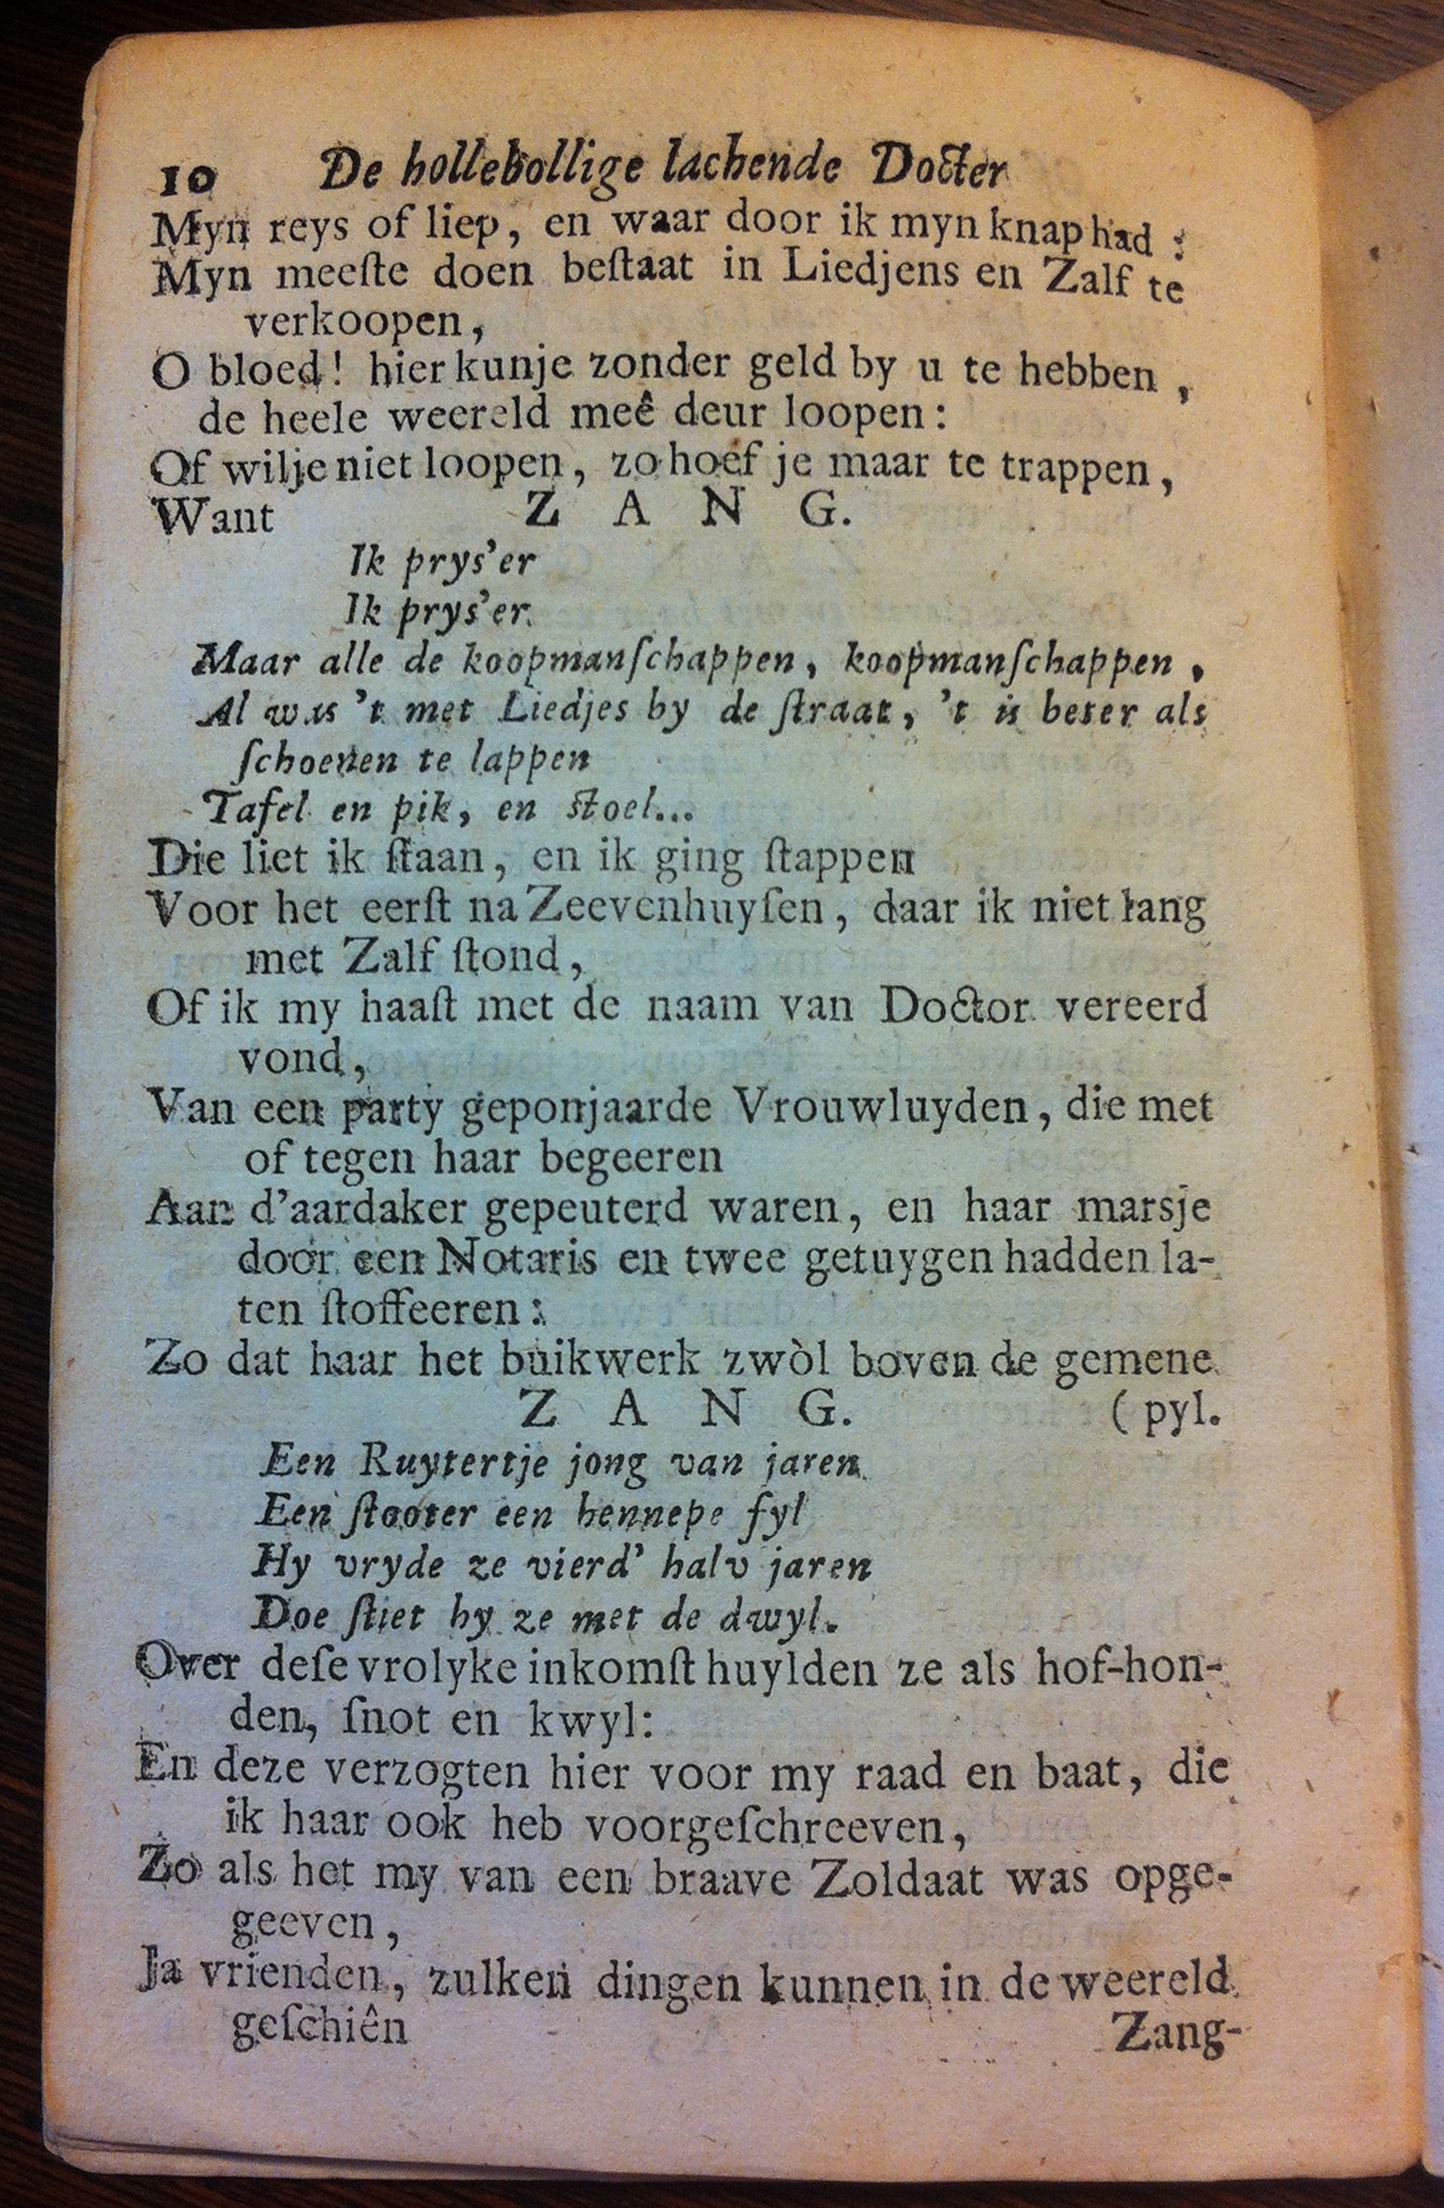 10 De hollebollige lachende Docter
Myn reys of liep, en waar door ik myn knap had:
Myn meeſte doen beſtaat in Liedjens en Zalf te
verkoopen,
O bloed! hier kunje zonder geld by u te hebben,
de heele weereld meê deur loopen:
Of wilje niet loopen, zo hoef je maar te trappen,
Want Z A N G.
Ik prys'er
Ik prys'er.
Maar alle de koopmanſchappen, koopmanſchappen,
Al was 't met Liedjes by de ſtraat, 't is beter als
ſchoenen te lappen
Tafel en pik, en ſtoel...
Die liet ik ſtaan, en ik ging ſtappen
Voor het eerſt na Zeevenhuyſen, daar ik niet lang
met Zalf ſtond,
Of ik my haaſt met de naam van Doctor vereerd
vond,
Van een party geponjaarde Vrouwluyden, die met
of tegen haar begeeren
Aan d'aardaker gepeuterd waren, en haar marsje
door een Notaris en twee getuygen hadden la-
ten ſtoffeeren:
Zo dat haar het buikwerk zwòl boven de gemene
Z A N G. (pyl.
Een Ruytertje jong van jaren
Een ſtooter een hennepe fyl
Hy vryde ze vierd' halv jaren
Doe ſtiet hy ze met de dwyl.
Over deſe vrolyke inkomſt huylden ze als hof-hon-
den, ſnot en kwyl:
En deze verzogten hier voor my raad en baat, die
ik haar ook heb voorgeſchreeven,
Zo als het my van een braave Zoldaat was opge-
geeven,
Ja vrienden, zulken dingen kunnen in de weereld
geſchiên Zang-